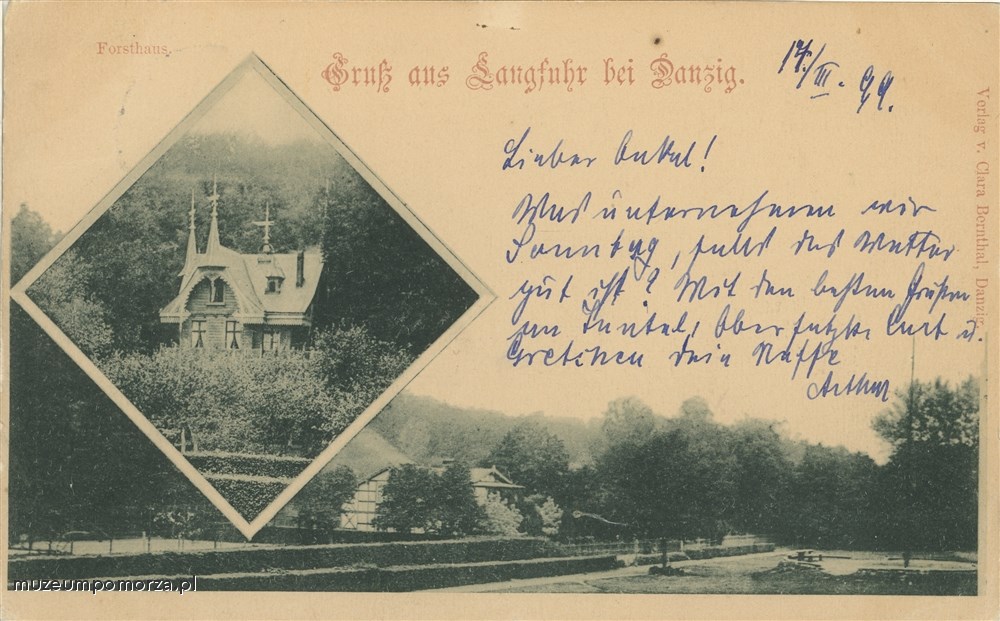 Forsthaus.
Gruß aus Langfuhr bei Danzig.
17./III. 99.
Verlag v. Clara Bernthal, Danzig.
Lieber Onkel!
Was unternehmen wir
Sonntag, falls das Wetter
gut ist? Mit den besten Grüßen
an Tantel, Curt u.
Gretchen dein Neffe
Arthur
muzeumpomorza.pl